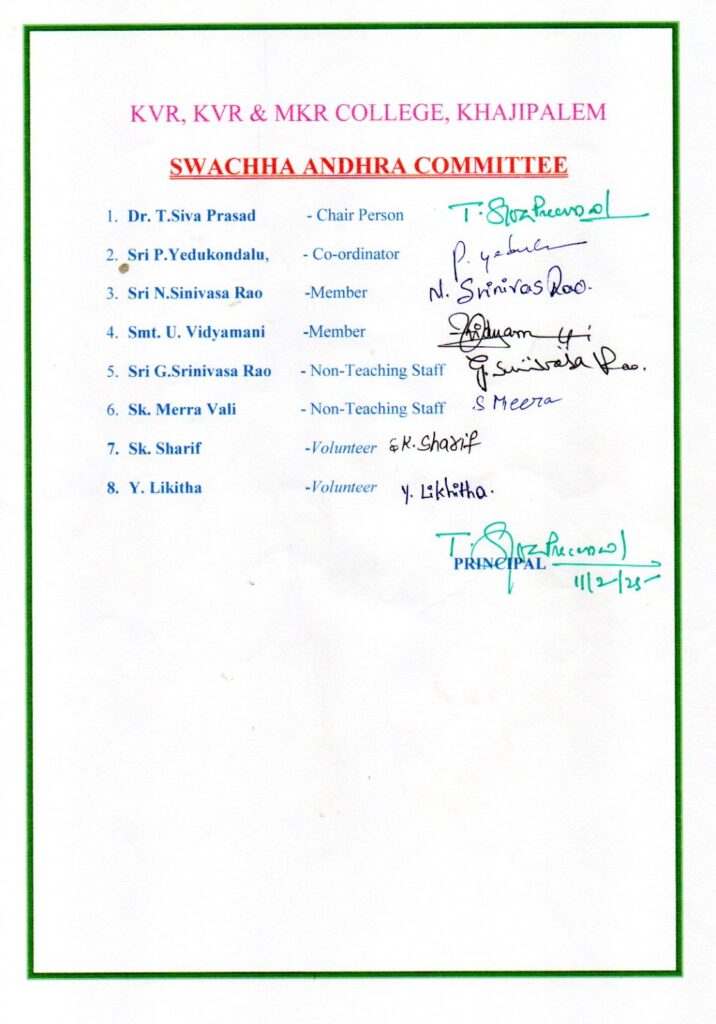 KVR, KVR & MKR COLLEGE, KHAJIPALEM
SWACHHA ANDHRA COMMITTEE
1. Dr. T.Siva Prasad - Chair Person T. Siva Prasad
2. Sri P.Yedukondalu, - Co-ordinator P. Yedu
3. Sri N.Sinivasa Rao -Member N. Srinivas Rao.
4. Smt. U. Vidyamani -Member
5. Sri G.Srinivasa Rao - Non-Teaching Staff G. Srinivasa Rao.
6. Sk. Merra Vali - Non-Teaching Staff S Meera
7. Sk. Sharif -Volunteer SK. Sharif
8. Y. Likitha -Volunteer Y. Likhitha.
T. Siva Prasad
PRINCIPAL
11/2/25